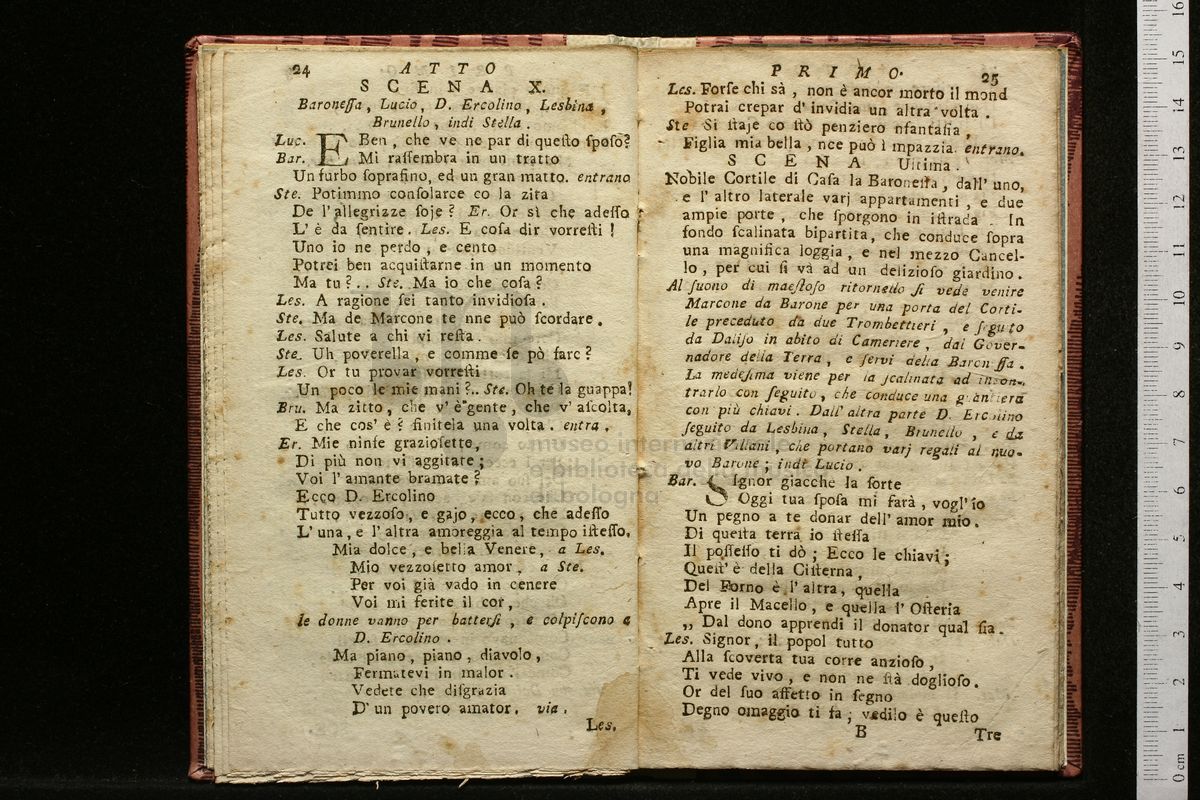 24
ATTO
SCENA X.
Baroneſſa, Lucio, D. Ercolino, Lesbina,
Brunello, indi Stella.
Luc. E Ben, che ve ne par di queſto ſpoſo?
Bar. Mi raſſembra in un tratto
Un furbo ſoprafino, ed un gran matto. entrano
Ste. Potimmo conſolarce co la zita
De l'allegrizze ſoje? Er. Or sì che adeſſo
L' è da ſentire. Les. E coſa dir vorreſti!
Uno io ne perdo, e cento
Potrei ben acquiſtarne in un momento
Ma tu?.. Ste. Ma io che coſa?
Les. A ragione ſei tanto invidioſa.
Ste. Ma de Marcone te nne può ſcordare.
Les. Salute a chi vi reſta.
Ste. Uh poverella, e comme ſe pò fare?
Les. Or tu provar vorreſti
Un poco le mie mani?.. Ste. Oh te la guappa!
Bru. Ma zitto, che v' è gente, che v' aſcolta,
E che cos' è? finitela una volta. entra.
Er. Mie ninfe grazioſette,
Di più non vi aggitate;
Voi l'amante bramate?
Ecco D. Ercolino
Tutto vezzoſo, e gajo, ecco, che adeſſo
L' una, e l' altra amoreggia al tempo iſteſſo.
Mia dolce, e bella Venere, a Les.
Mio vezzoſetto amor, a Ste.
Per voi già vado in cenere
Voi mi ferite il cor,
le donne vanno per batterſi, e colpiſcono a
D. Ercolino.
Ma piano, piano, diavolo,
Fermatevi in malor.
Vedete che diſgrazia
D' un povero amator. via.
Les.
PRIMO.
25
Les. Forſe chi sà, non è ancor morto il mond
Potrai crepar d' invidia un altra volta.
Ste Si ſtaje co ſtò penziero nfantaſia,
Figlia mia bella, nce può i mpazzia. entrano.
SCENA Ultima.
Nobile Cortile di Caſa la Baroneſſa, dall' uno,
e l' altro laterale varj appartamenti, e due
ampie porte, che ſporgono in iſtrada. In
fondo ſcalinata bipartita, che conduce ſopra
una magnifica loggia, e nel mezzo Cancel-
lo, per cui ſi và ad un delizioſo giardino.
Al ſuono di maeſtoſo ritornello ſi vede venire
Marcone da Barone per una porta del Corti-
le preceduto da due Trombettieri, e ſeguito
da Daliſo in abito di Cameriere, dal Gover-
nadore della Terra, e ſervi della Baroneſſa.
La medeſima viene per la ſcalinata ad incon-
trarlo con ſeguito, che conduce una guantiera
con più chiavi. Dall' altra parte D. Ercolino
ſeguito da Lesbina, Stella, Brunello, e da
altri Villani, che portano varj regali al nuo-
vo Barone; indi Lucio.
Bar. SIgnor giacche la ſorte
Oggi tua ſpoſa mi farà, vogl' io
Un pegno a te donar dell' amor mio.
Di queſta terra io ſteſſa
Il poſſeſſo ti dò; Ecco le chiavi;
Queſt' è della Ciſterna,
Del Forno è l' altra, quella
Apre il Macello, e quella l' Oſteria
„ Dal dono apprendi il donator qual ſia.
Les. Signor, il popol tutto
Alla ſcoverta tua corre anzioſo,
Ti vede vivo, e non ne ſtà doglioſo.
Or del ſuo affetto in ſegno
Degno omaggio ti fa; vedilo è queſto
B
Tre
museo internazionale
e biblioteca della musica
di bologna
0 cm 1 2 3 4 5 6 7 8 9 10 11 12 13 14 15 16